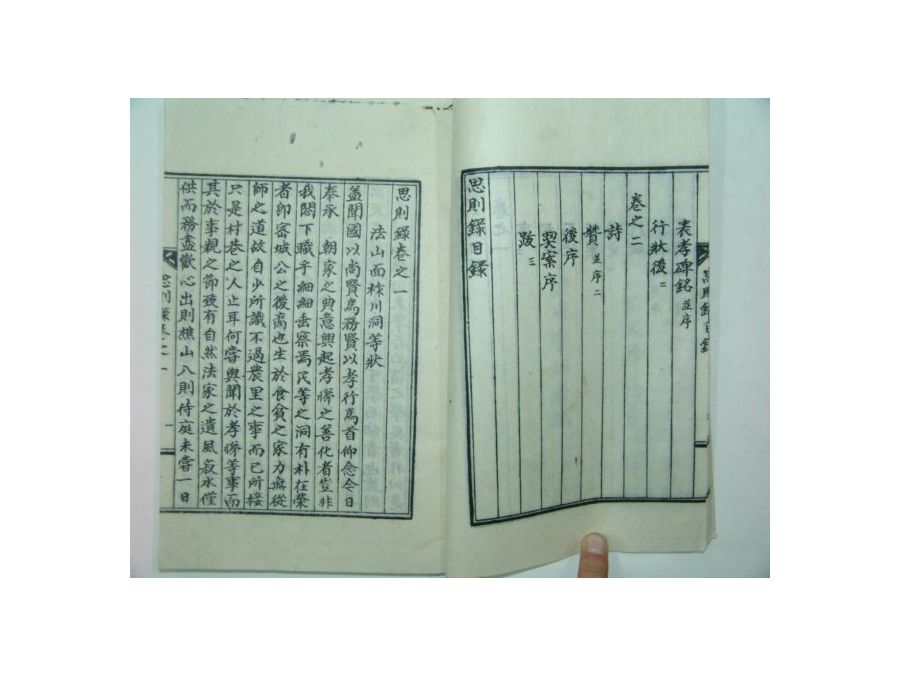 表孝碑銘 並序
行狀後 二
卷之二
詩
贊 並序 二
後序
契案序
跋 三
思則錄目錄
思則錄目錄
思則錄卷之一
法山面棘川洞等狀
盖聞國以尚賢爲務賢以孝行爲首仰惟今日
奉承 朝家之典意興起孝悌之善化者豈非
我閤下職乎細細垂察焉民等之洞有朴在榮
者卽密城公之後裔也生於食貧之家力無從
師之道故自少所識不過農里之事而已所接
只是村巷之人止耳何嘗與聞於孝悌等事而
其於事親之節致有自然法家之遺風菽水僅
供而務盡歡心出則樵山入則侍庭未嘗一日
思則錄卷之一 一